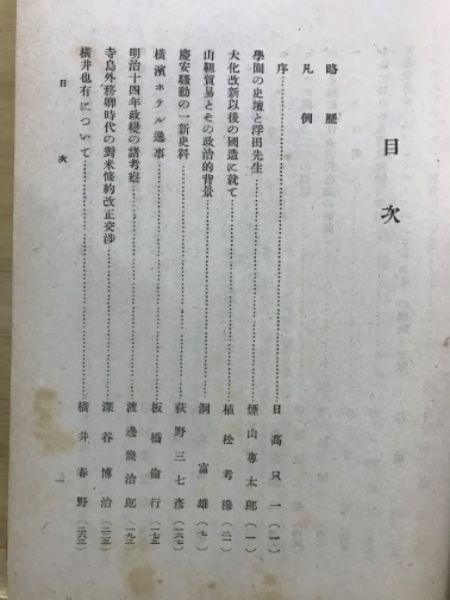 目次
略歴
凡例
序……日高只一(一)
學園の史壇と浮田先生……煙山專太郎(一)
大化改新以後の國造に就て……植松考穆(二一)
山靼貿易とその政治的背景……洞富雄(七)
慶安騷動の一新史料……荻野三七彥(一六七)
橫濱ホテル逸事……板橋倫行(一七五)
明治十四年政變の諸考察……渡邊幾治郎(一九三)
寺島外務卿時代の對米條約改正交涉……深谷博治(二二五)
橫井也有について……橫井春野(二六三)
目次
一